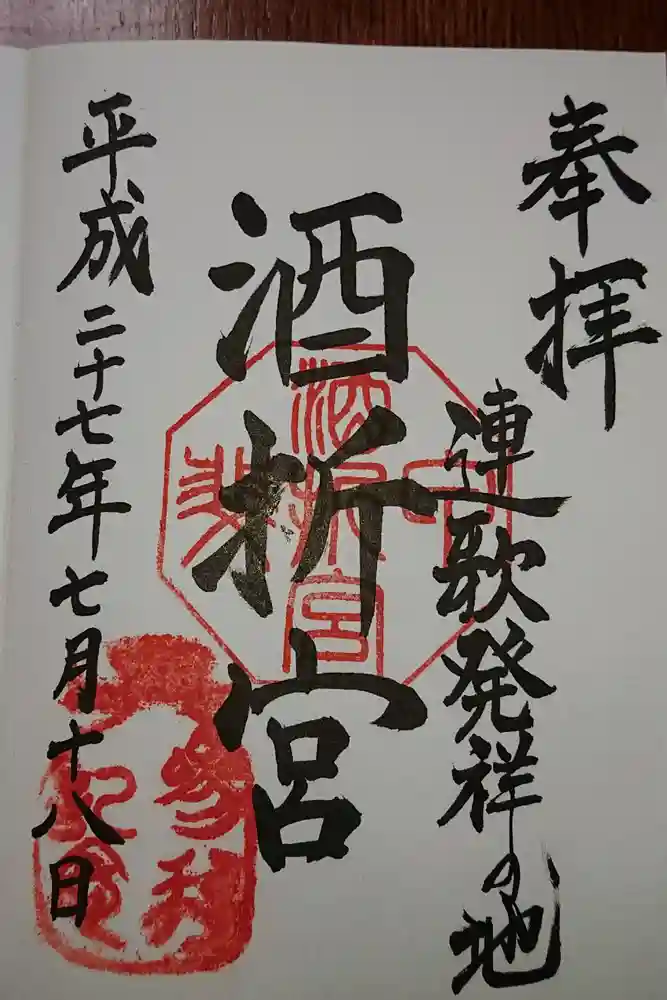 奉拝
連歌発祥の地
酒折宮
平成二十七年七月十八日
酒折宮
参拝
記念